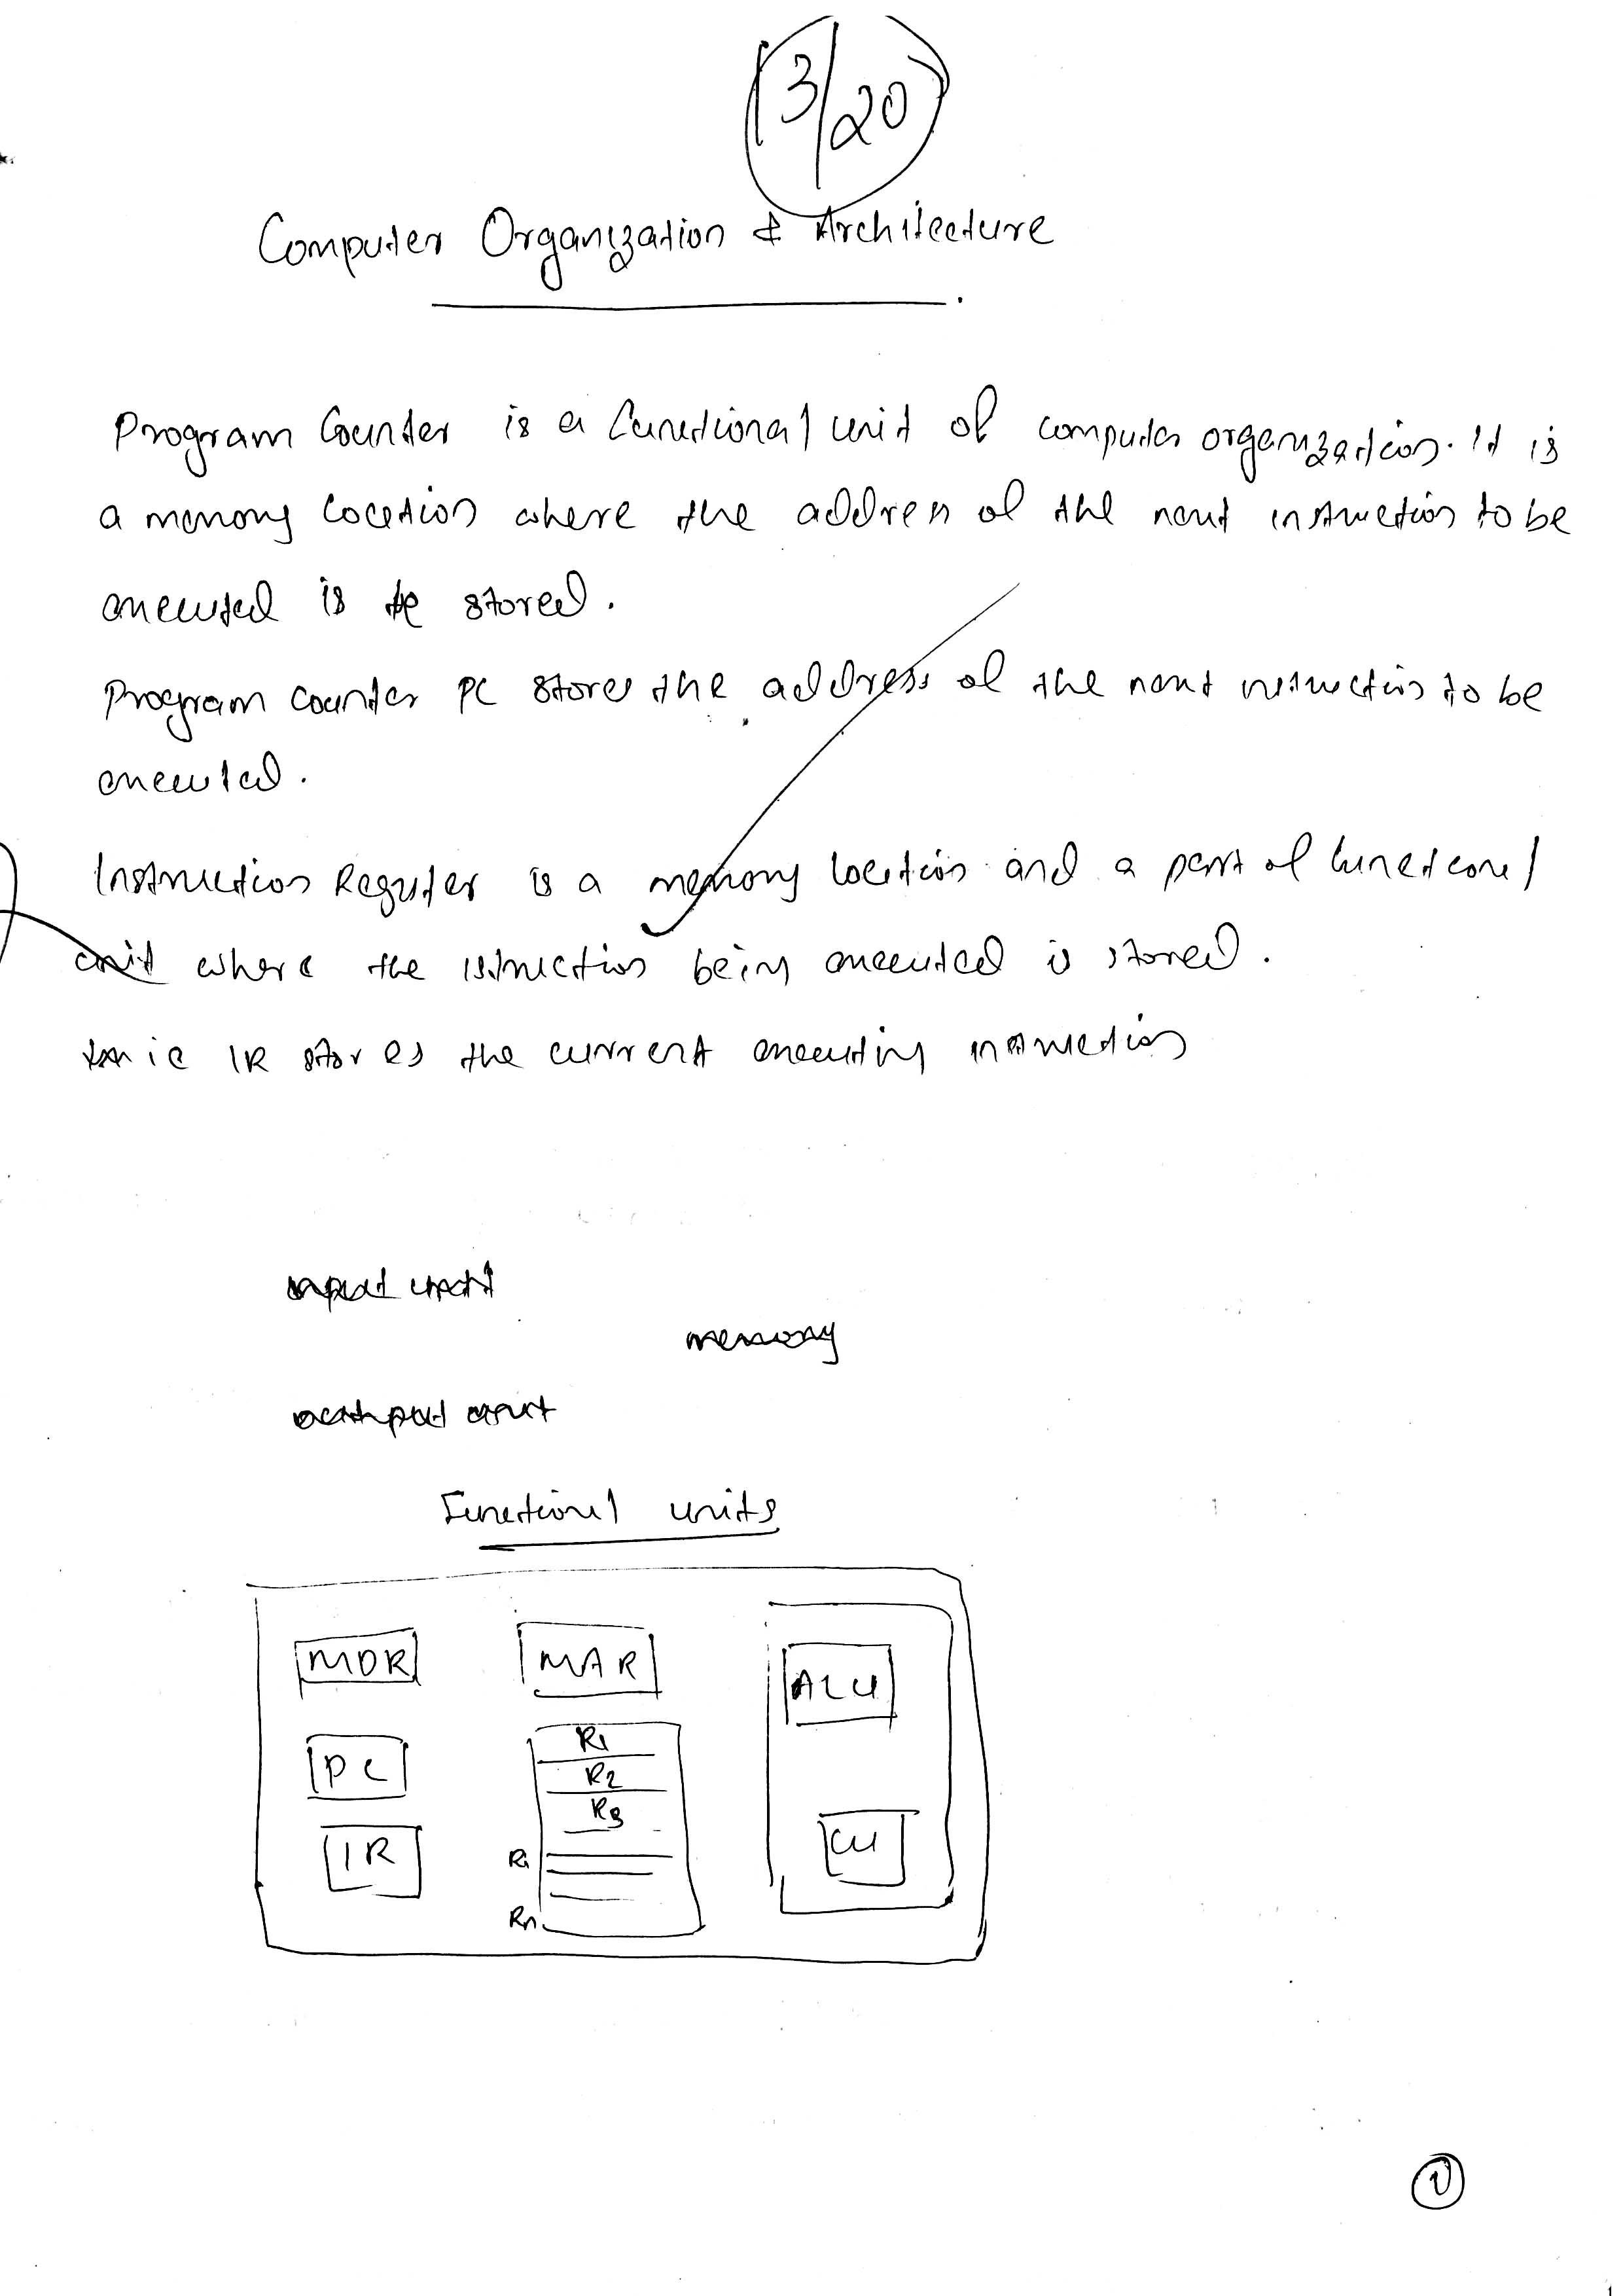 (3/20)
Computer Organization & Architecture
Program Counter is a functional unit of computer organization. It is
a memory location where the address of the next instruction to be
executed is stored.
Program counter PC stores the address of the next instruction to be
executed.
Instruction Register is a memory location and a part of functional
unit where the istruction being executed is stored.
ie IR stores the current executing instruction
input unit
memory
output unit
Functional units
MDR MAR ALU
PC R1
R2
R3
IR Ri CU
Rn
1